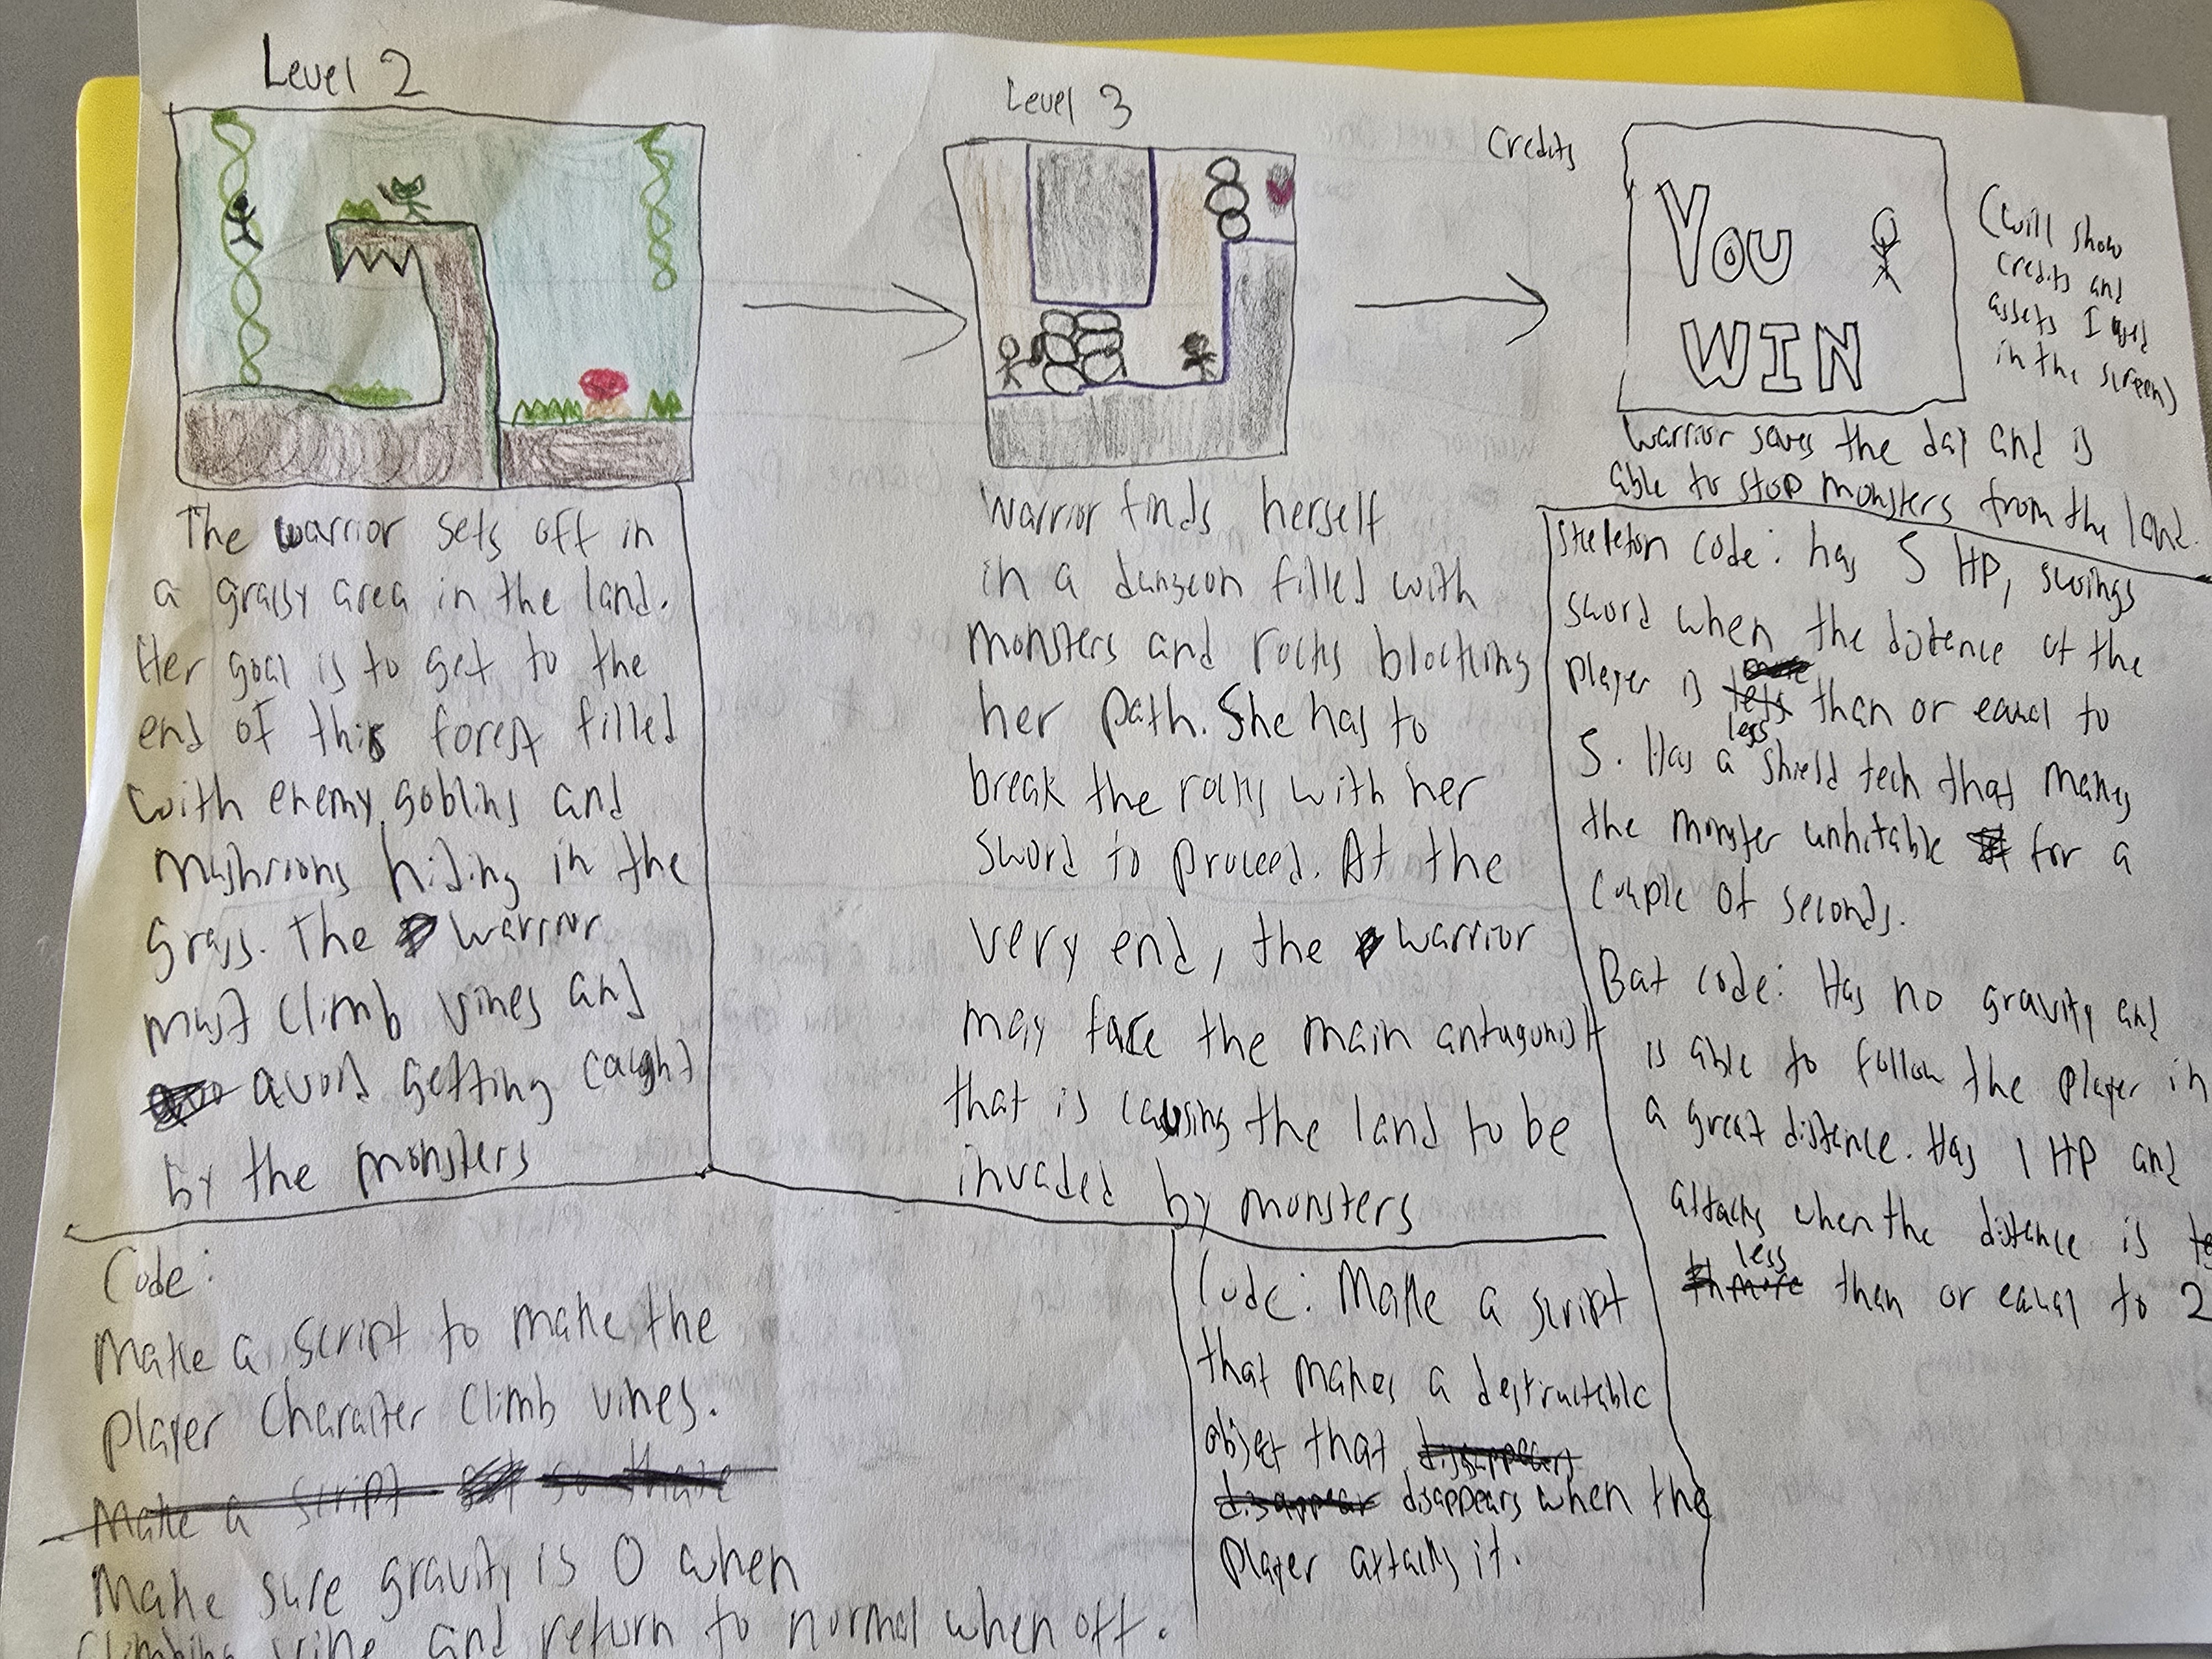 Level 2
The warrior sets off in
a grassy area in the land.
Her goal is to get to the
end of this forest filled
with enemy goblins and
mushrooms hiding in the
grass. The warrior
must climb vines and
avoid getting caught
by the monsters
Code:
Make a script to make the
player charaiter climb vines.
Make a script
Make sure gravity is 0 when
climbing vine and return to normal when off.
Level 3
Warrior finds herself
in a dungeon filled with
monsters and rocks blocking
her path. She has to
break the rocks with her
sword to proceed. At the
very end, the warrior
may face the main antagonist
that is causing the land to be
invaded by monsters
Code: Make a script
that makes a destructable
object that
disappears when the
player attacks it.
Credits
YOU
WIN
(will show
credits and
assets I used
in the screen)
Warrior saves the day and is
able to stop monsters from the land.
Skeleton code: has 5 HP, swings
sword when the distence of the
player is less than or equal to
5. Has a shield tech that makes
the monster unhitable for a
couple of seconds.
Bat code: Has no gravity and
is able to follow the player in
a great distence. Has 1 HP and
attacks when the distence is
less than or equal to 2